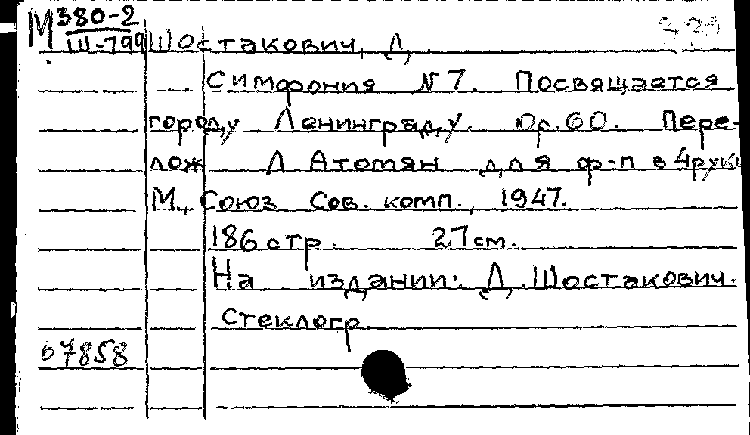 М 380-2
III-799 Шостакович, Д.
Симфония N 7. Посвящается
городу Ленинграду. Op. 60. Пере-
лож Л Атомян для ф-п в 4 руки
М., Союз Сов. комп., 1947.
186 стр. 27 см.
На издании: Д. Шостакович.
Стеклогр.
57858